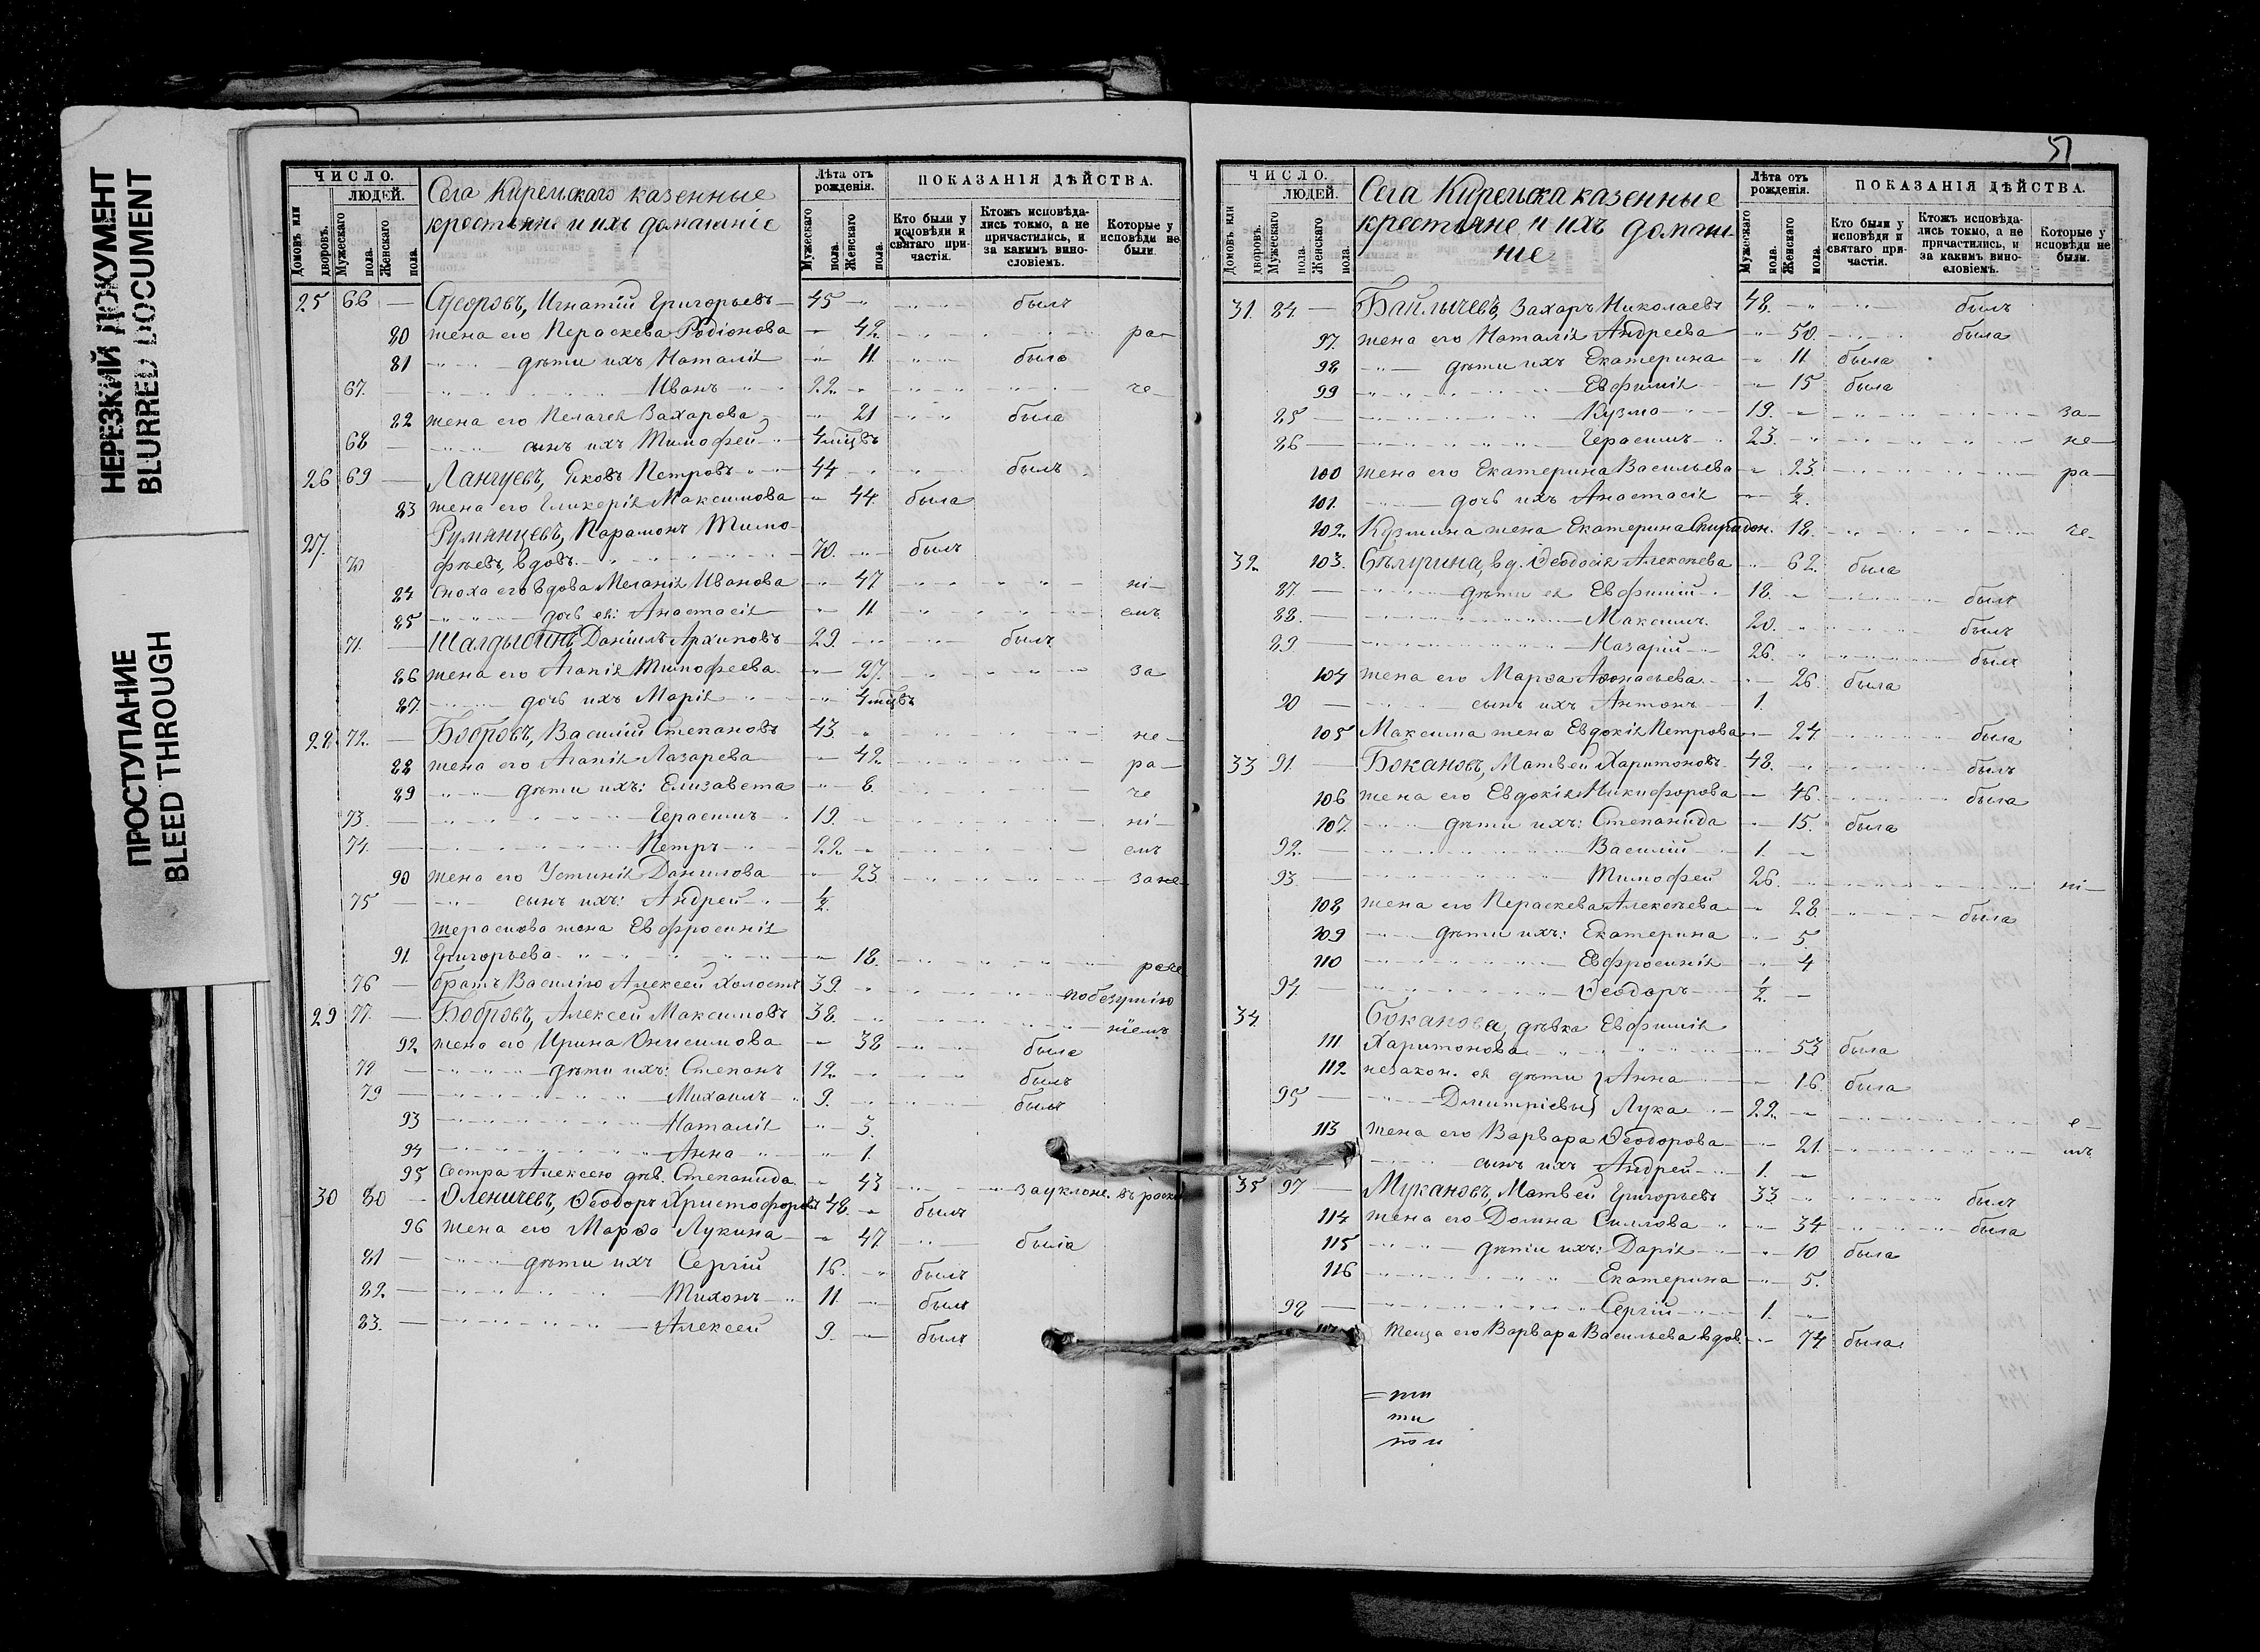 НЕРЕЗКИЙ ДОКУМЕНТ
BLURRED DOCUMENT
ПРОСТУПАНИЕ
BLEED THROUGH
ЧИСЛО.
ЛЮДЕЙ.
Домовъ или дворовъ.
Мужескаго пола.
Женскаго пола.
Села Кирельскаго казенные
крестьяне и ихъ домашніе
Лѣта отъ рожденія.
Мужескаго пола.
Женскаго пола.
ПОКАЗАНІЯ ДѢЙСТВА.
Кто были у исповѣди и святаго причастія.
Ктожъ исповѣдались токмо, а не причастились, и за какимъ винословіемъ.
Которые у исповѣди не были.
25 66 — Игнатій Григорьевъ — 45 былъ
80 жена его Пераскева Родіонова — 42 ра—
81 дѣти ихъ Наталія — 11 была
67. Иванъ 22 че—
82 жена его Пелагея Захарова — 21 была
68 — сынъ ихъ Тимофей 4 мцвъ
26 69 — Лангуевъ, Яковъ Петровъ 44 былъ
83 жена его Гликерія Максимова — 44. была
27. Румянцевъ, Парамонъ Тимо-
70 фѣевъ, вдовъ. 70. былъ
84 сноха его вдова Меланія Иванова 47 ні—
85 дочь ея: Анастасія — 11 емъ
71. — Даніилъ Архиповъ 29. былъ
86 жена его Агапія Тимофеева — 27. за
87. дочь ихъ Марія 4 мцвъ
28. 72. — Бобровъ, Василій Степановъ 43 не—
88 жена его Агапія Лазарева — 42 ра—
89 дѣти ихъ: Елизавета — 8 че
73. — Герасимъ 19. ні—
74. — Петръ 22 емъ
90 жена его Устинія Данилова — 23 зане—
75 — сынъ ихъ: Андрей — ½
Герасимова жена Евфросинія
91. Григорьева — 18. раче
76 — братъ Василію Алексей холостъ 39. по безумію
29 77. — Бобровъ, Алексей Максимовъ 38. ніемъ
92. жена его Ирина Онисимова — 38 была
78 — дѣти ихъ: Степанъ 12. былъ
79 — Михаилъ 9. былъ
93 Наталія — 3.
94 Анна — 1.
95 Сестра Алексею дѣв. Степанида — 43 за уклоне. въ раск
30 80 — Оленичевъ, Ѳеодоръ Христофоровъ 48. былъ
96 жена его Марѳа Лукина — 47 была
81 — дѣти ихъ Сергій 16. былъ
82. — Тихонъ 11. былъ
83. — Алексей 9. былъ
51
ЧИСЛО.
ЛЮДЕЙ.
Домовъ или дворовъ.
Мужескаго пола.
Женскаго пола.
Села Кирельска казенные
крестьяне и ихъ домаш
ніе
Лѣта отъ рожденія.
Мужескаго пола.
Женскаго пола.
ПОКАЗАНІЯ ДѢЙСТВА.
Кто были у исповѣди и святаго причастія.
Ктожъ исповѣдались токмо, а не причастились, и за какимъ винословіемъ.
Которые у исповѣди не были.
31. 84 — Байлычевъ, Захаръ Николаевъ 48. былъ
97. жена его Наталія Андреева — 50. была
98 дѣти ихъ Екатерина 11 была
99 Евфимія — 15 была
85 — Кузма 19. за—
86 — Герасимъ 23. не—
100 жена его Екатерина Васильева — 23 ра—
101. дочь ихъ Анастасія — ½.
102. Кузмина жена Екатерина Спиридон. 18. че—
32. 103. вд. Ѳеодосія Алексѣева 62. была
87. — дѣти ея Евфимій 18. былъ
88. — Максимъ. 20. былъ
89 — Назарій 26. былъ
104 жена его Марѳа Аѳонасьева. 26. была
90 — сынъ ихъ Антонъ 1.
105 Максима жена Евдокія Петрова 24. была
33 91 — Бокановъ, Матвей Харитоновъ 48. былъ
106 жена его Евдокія Никифорова 46. была
107. дѣти ихъ: Степанида 15. была
92. — Василій 1.
93. — Тимофей 26. ні—
108 жена его Пераскева Алексѣева 28. была
109 дѣти ихъ: Екатерина 5.
110 Евфросинія 4
94. Ѳеодоръ ½.
34. Боканова, дѣвка Евфимія
111 Харитонова 53 была
112 незакон. ея дѣти } Анна 16. была
95 — Дмитріевы } Лука 22.
113 жена его Варвара Ѳеодорова 21. е—
сынъ ихъ Андрей 1. мъ
35 97 — Мукановъ, Матвей Григорьевъ 33 былъ
114 жена его Домна Силлова 34 была
115 дѣти ихъ: Дарія 10 была
116 Екатерина 5.
98 — Сергій 1.
Теща его Варвара Васильева вдов. 74 была